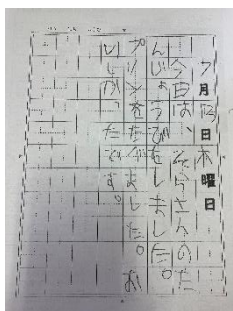 7月13日木曜日
今日は、そらさんのた
んじょうびをしました。
プリンをたべました。お
いしかったです。